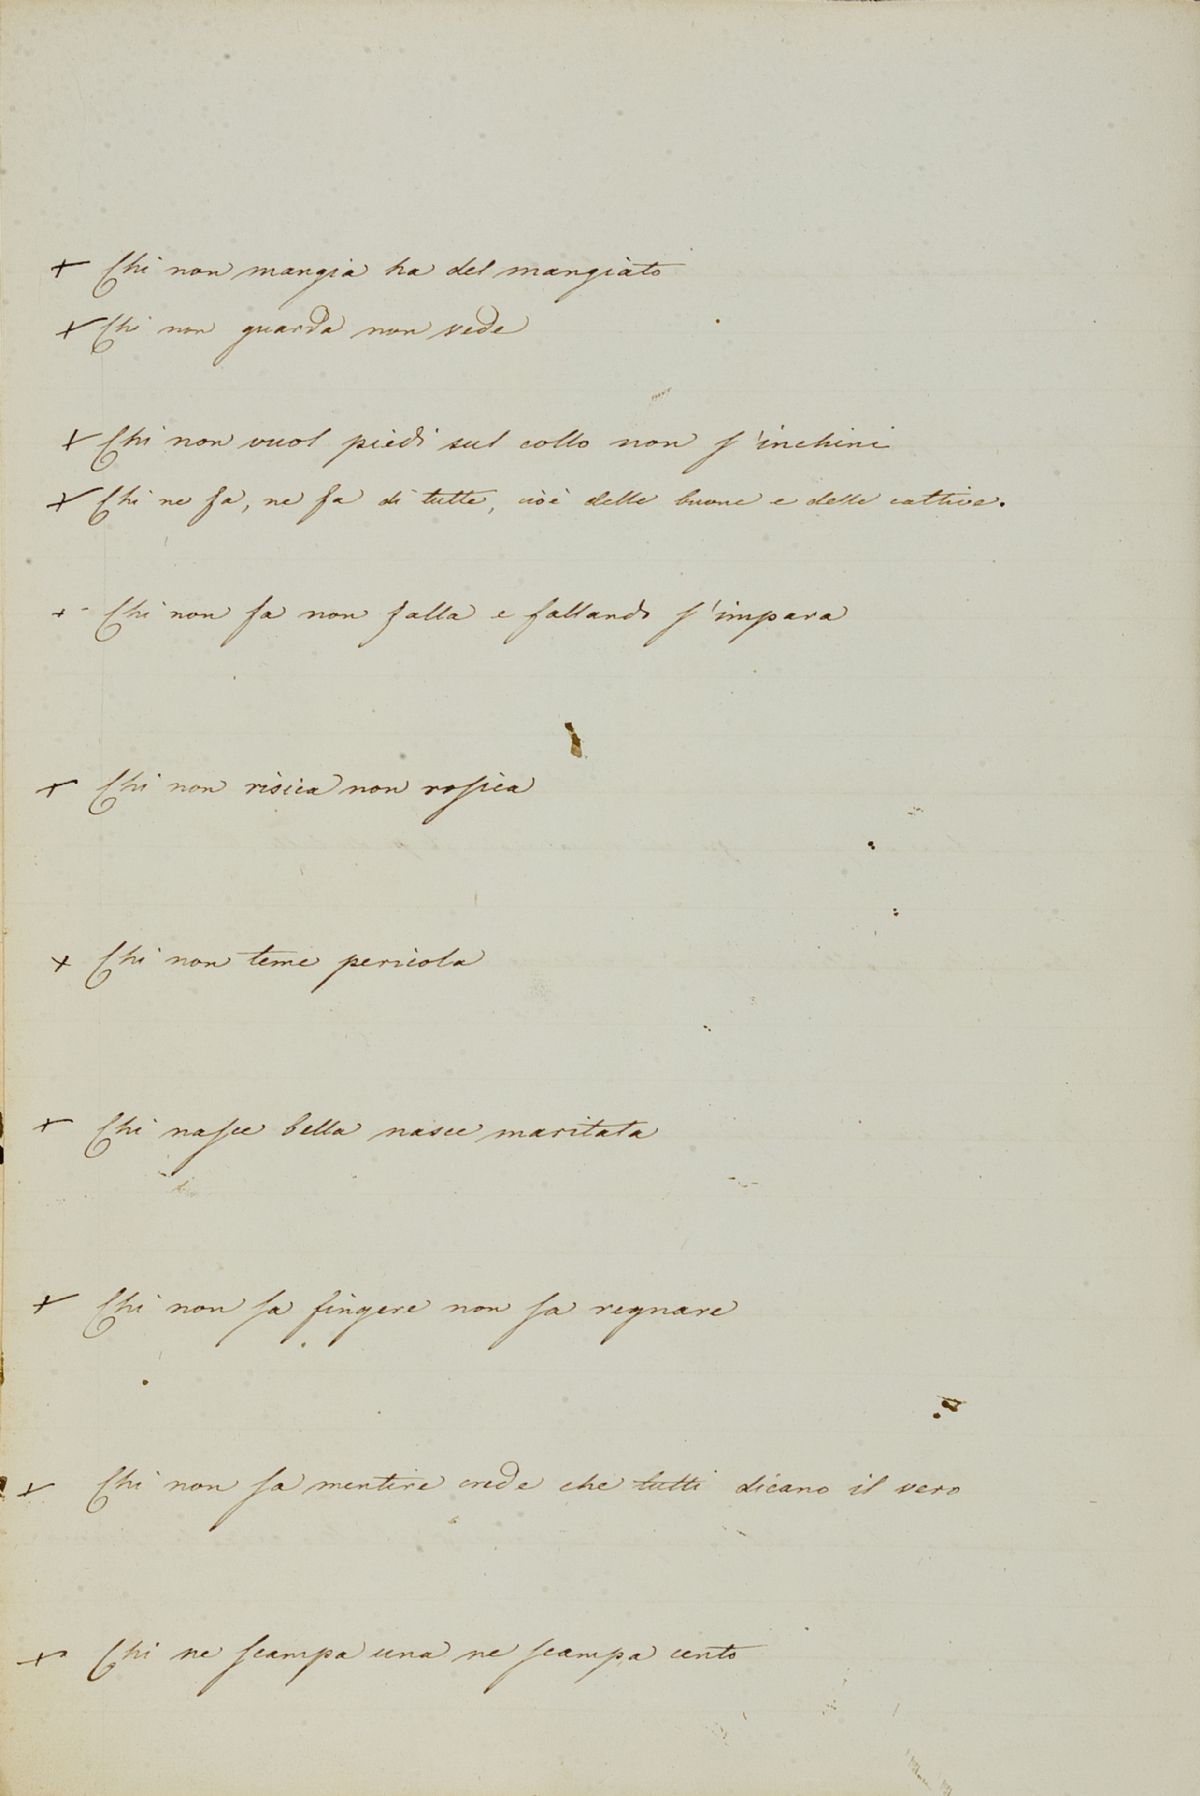 + Chi non mangia ha del mangiato
+ Chi non guarda non vede
+ Chi non vuol piedi sul collo non s'inchini
+ Chi ne fa, ne fa di tutte, cioè delle buone e delle cattive.
+ - Chi non fa non falla e fallando s'impara
+ Chi non risica non rosica
+ Chi non teme pericola
+ Chi nasce bella nasce maritata
+ Chi non sa fingere non sa regnare
+ Chi non sa mentire crede che tutti dicano il vero
+ Chi ne scampa una ne scampa cento